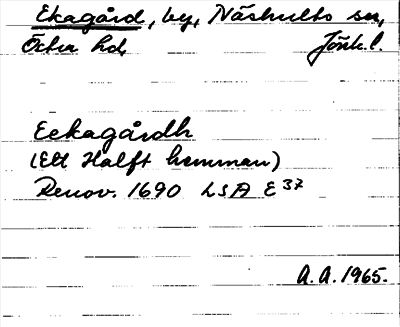 Ekagård, by, Näshults sn,
Östra hd, Jönk.l.
Eekagårdh
(Ett Halft hemman)
Renov. 1690 LSA E 37
A.A. 1965.